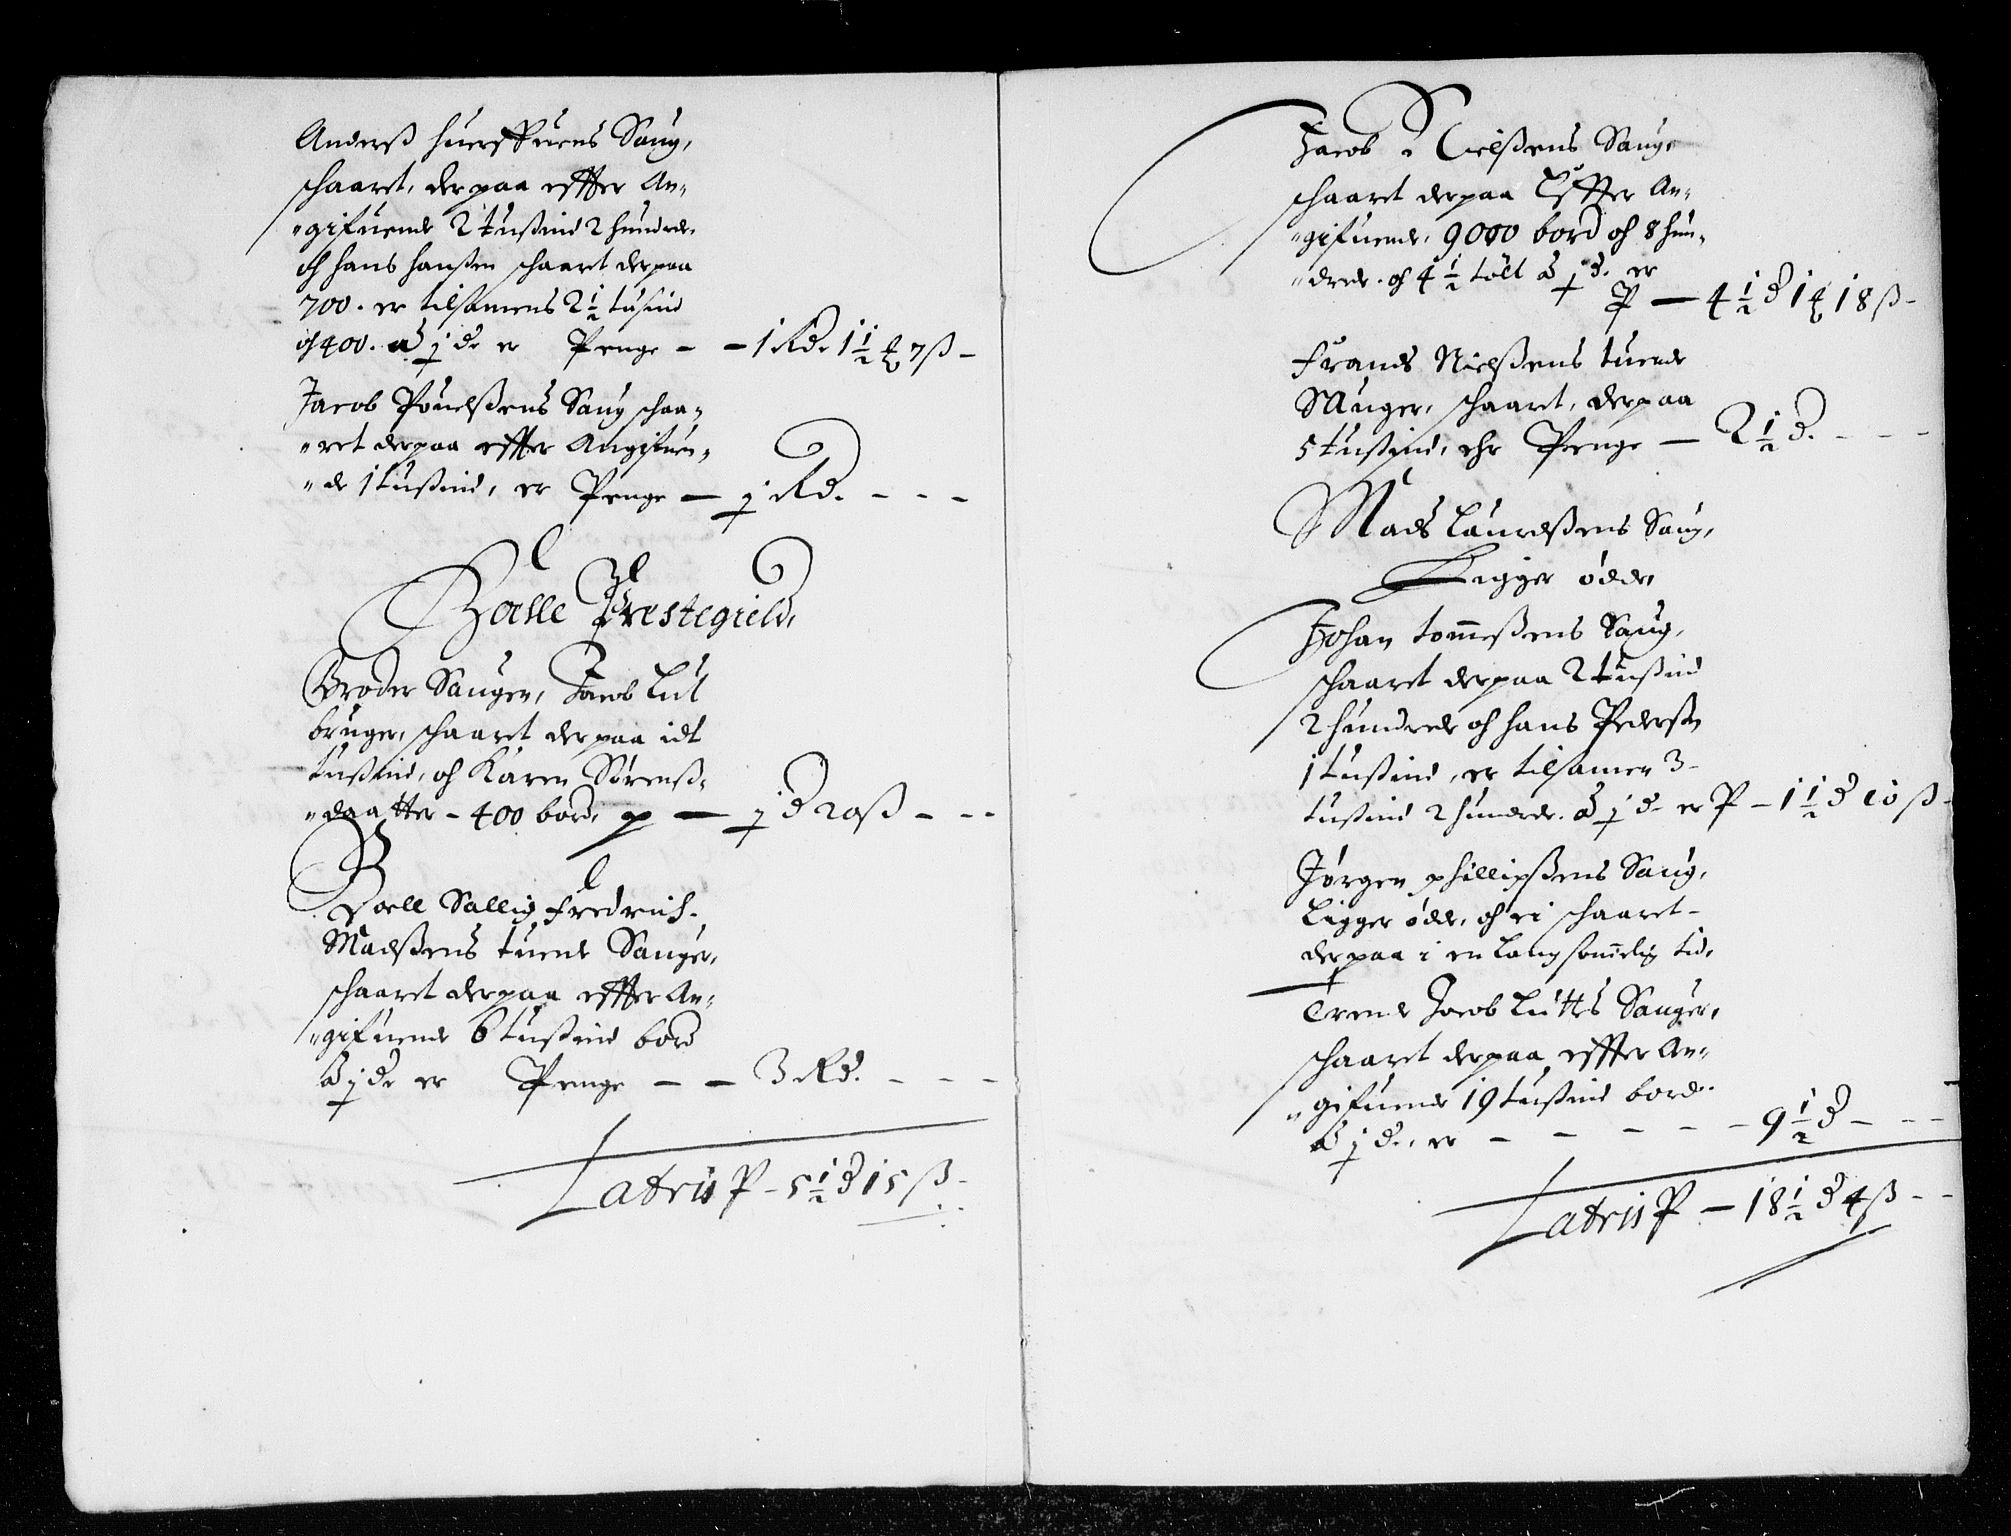 Anderß Saug,
schaaret, der paa effter An-
"gifuende 2 tußind 2 hundrede
och hans hanßen schaaret der paa
700. er tilsamens 2 1/2 tusind
och 400. á j d. er Penge - - 1 Rd. 1 1/2 7 ß -
Jacob Pouelßens Saug schaa-
"ret der paa effter Angifuen-
"de 1 tußind, er Penge - j Rd. - - -
Prestegield,
Broder Saugen, Jacob Lut
bruger, schaaret der paa idt
tußind, och Karen Sørenß-
"daatter - 400 bord, p - j d 20 ß - - -
Boell Sallig Fredrich
Madßens tuende Sauger,
schaaret der paa effter An-
"gifuende 6 tußind bord
á j d. er Penge - - 3 Rd. - - -
Latris P - 5 1/2 d 15 ß -
Jacob Nielßens Saug,
schaaret der paa Effter An-
"gifuende, 9000 bord och 8 hun-
"drede. och 4 1/2 tölt á j d. er
P - 4 1/2 d 1 18 ß -
Frands Nielßens tuende
Sauger, schaaret, der paa
5 tußind, ehr Penge - 2 1/2 d. - - -
Mads Lauredßens Saug,
Ligger øde,
Johan tommeßens Saug,
schaaret der paa 2 tußind
2 hundrede och hans Pederßen
1 tußind, er tilsamen 3 -
tußind 2 hundrede. á j d. er P - 1 1/2 d 10 ß -
Jørgen phillipßens Saug,
Ligger øde, och ei schaaret -
der paa i en Langsommelig tid,
Trende Jacob Luttes Sauger,
schaaret der paa effter An-
"gifuende 19 tußind bord.
á j d., er - - - - - 9 1/2 d - - -
Latris P - 18 1/2 d 4 ß - -